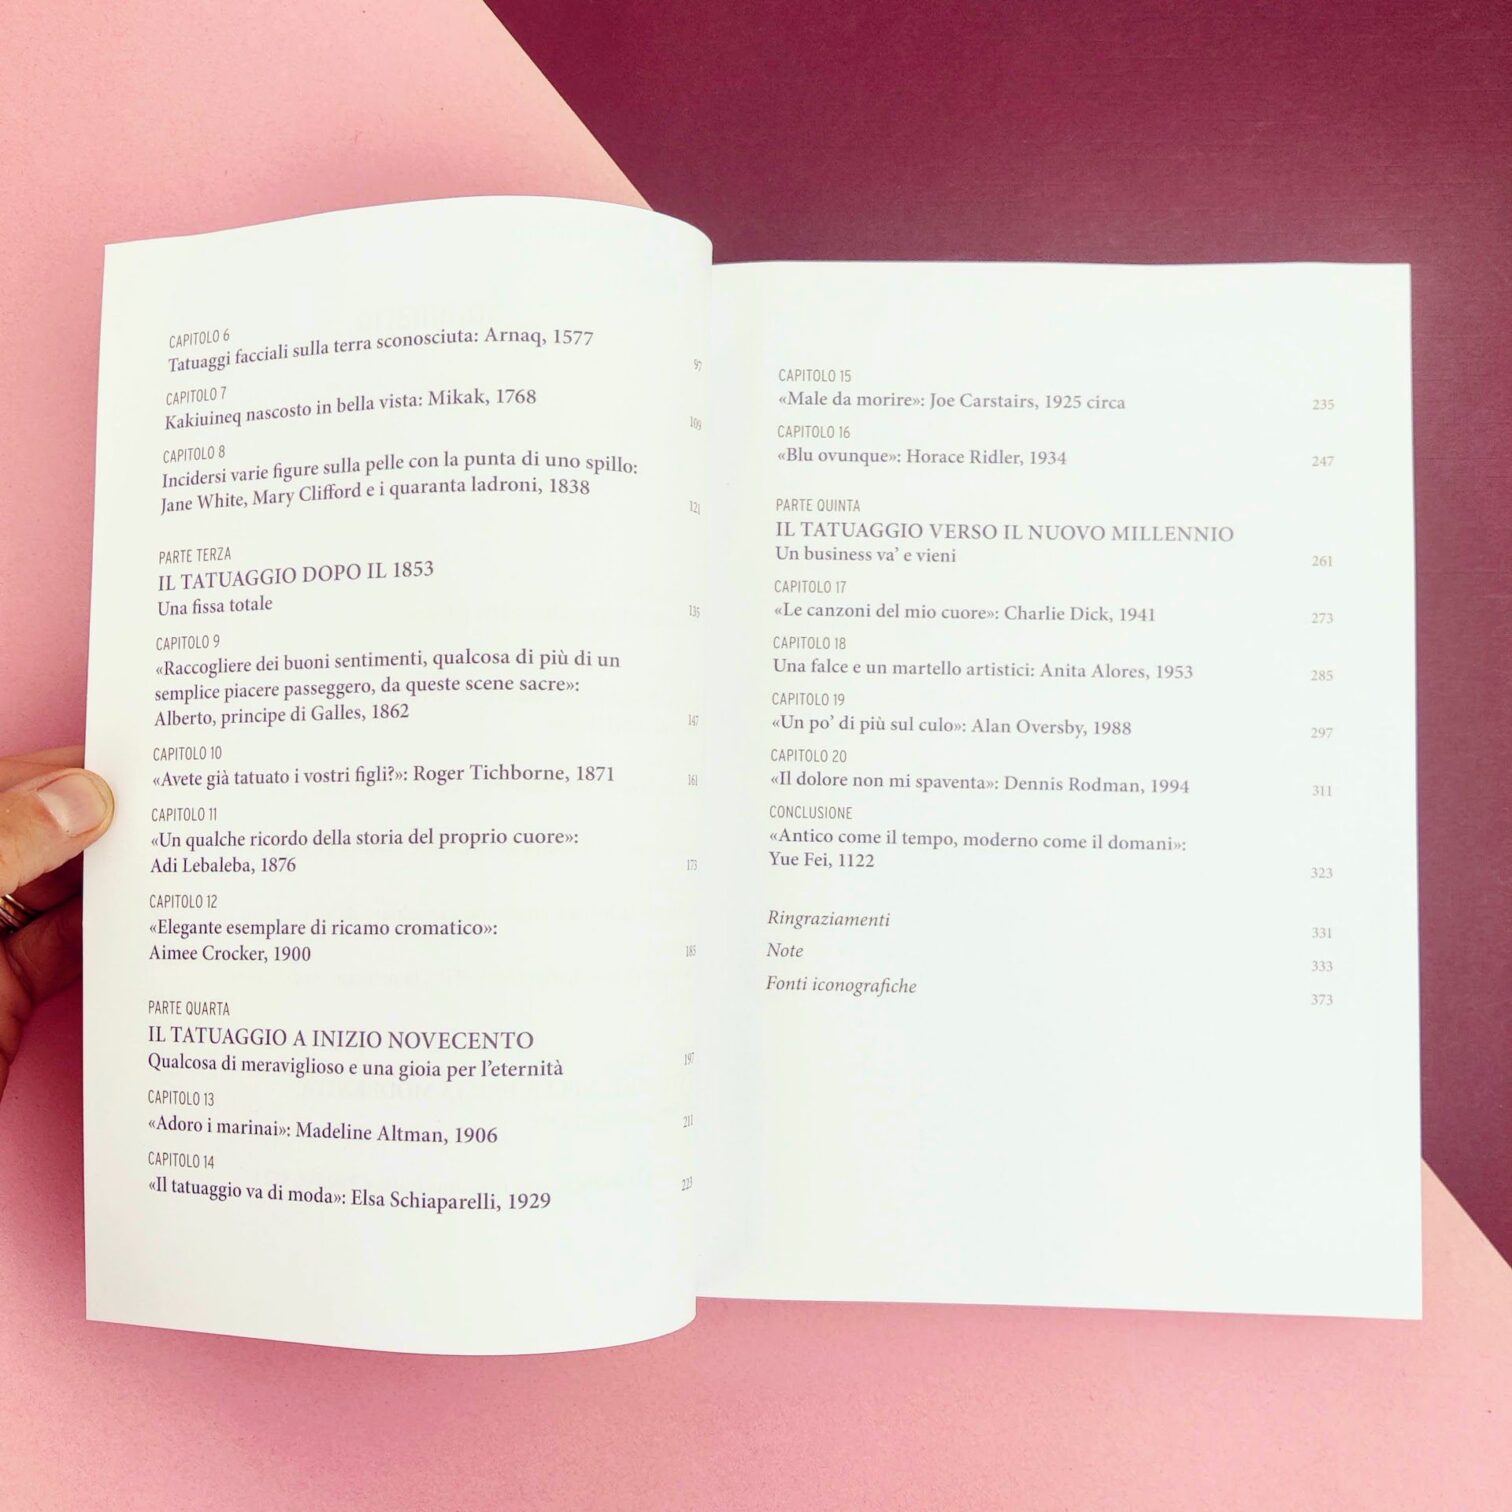 CAPITOLO 6
Tatuaggi facciali sulla terra sconosciuta: Arnaq, 1577
97
CAPITOLO 7
Kakiuineq nascosto in bella vista: Mikak, 1768
109
CAPITOLO 8
Incidersi varie figure sulla pelle con la punta di uno spillo:
Jane White, Mary Clifford e i quaranta ladroni, 1838
121
PARTE TERZA
IL TATUAGGIO DOPO IL 1853
Una fissa totale
135
CAPITOLO 9
«Raccogliere dei buoni sentimenti, qualcosa di più di un
semplice piacere passeggero, da queste scene sacre»:
Alberto, principe di Galles, 1862
147
CAPITOLO 10
«Avete già tatuato i vostri figli?»: Roger Tichborne, 1871
161
CAPITOLO 11
«Un qualche ricordo della storia del proprio cuore»:
Adi Lebaleba, 1876
173
CAPITOLO 12
«Elegante esemplare di ricamo cromatico»:
Aimee Crocker, 1900
185
PARTE QUARTA
IL TATUAGGIO A INIZIO NOVECENTO
Qualcosa di meraviglioso e una gioia per l'eternità
197
CAPITOLO 13
«Adoro i marinai»: Madeline Altman, 1906
211
CAPITOLO 14
«Il tatuaggio va di moda»: Elsa Schiaparelli, 1929
223
CAPITOLO 15
«Male da morire»: Joe Carstairs, 1925 circa
235
CAPITOLO 16
«Blu ovunque»: Horace Ridler, 1934
247
PARTE QUINTA
IL TATUAGGIO VERSO IL NUOVO MILLENNIO
Un business va' e vieni
261
CAPITOLO 17
«Le canzoni del mio cuore»: Charlie Dick, 1941
273
CAPITOLO 18
Una falce e un martello artistici: Anita Alores, 1953
285
CAPITOLO 19
«Un po' di più sul culo»: Alan Oversby, 1988
297
CAPITOLO 20
«Il dolore non mi spaventa»: Dennis Rodman, 1994
311
CONCLUSIONE
«Antico come il tempo, moderno come il domani»:
Yue Fei, 1122
323
Ringraziamenti
331
Note
333
Fonti iconografiche
373